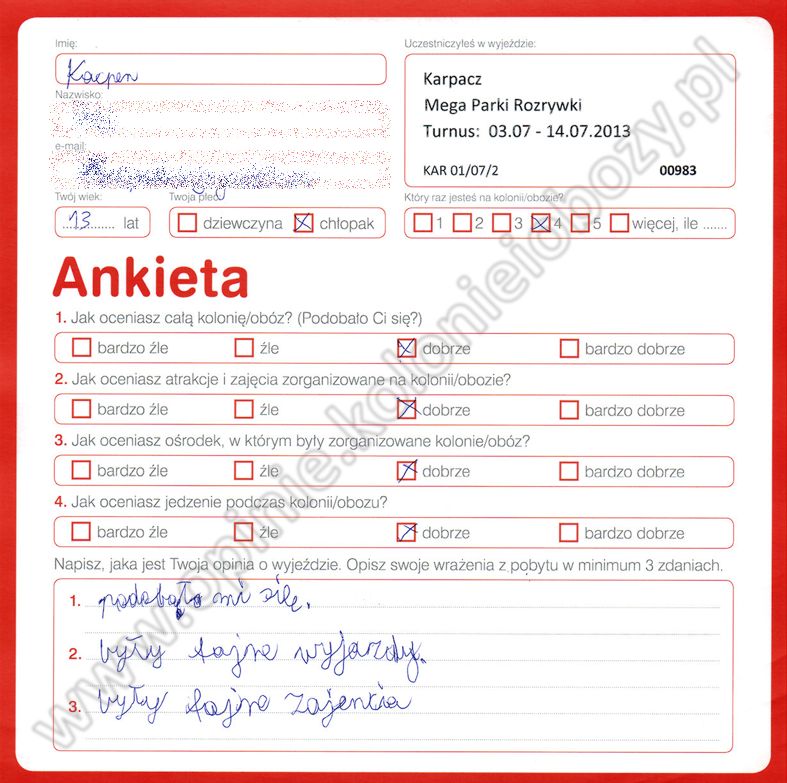 Imię:
Uczestniczyłeś w wyjeździe:
Kacper
Karpacz
Mega Parki Rozrywki
Turnus: 03.07 - 14.07.2013
KAR 01/07/2 00983
Nazwisko:
e-mail:
Twój wiek: Twoja płeć: Który raz jesteś na kolonii/obozie?
13 lat dziewczyna chłopak 1 2 3 4 5 więcej, ile .......
Ankieta
1. Jak oceniasz całą kolonię/obóz? (Podobało Ci się?)
bardzo źle źle dobrze bardzo dobrze
2. Jak oceniasz atrakcje i zajęcia zorganizowane na kolonii/obozie?
bardzo źle źle dobrze bardzo dobrze
3. Jak oceniasz ośrodek, w którym były zorganizowane kolonie/obóz?
bardzo źle źle dobrze bardzo dobrze
4. Jak oceniasz jedzenie podczas kolonii/obozu?
bardzo źle źle dobrze bardzo dobrze
Napisz, jaka jest Twoja opinia o wyjeździe. Opisz swoje wrażenia z pobytu w minimum 3 zdaniach.
1. podobało mi się.
2. były fajne wyjazdy.
3. były fajne zajencia
www.opinie.kolonieiobozy.pl